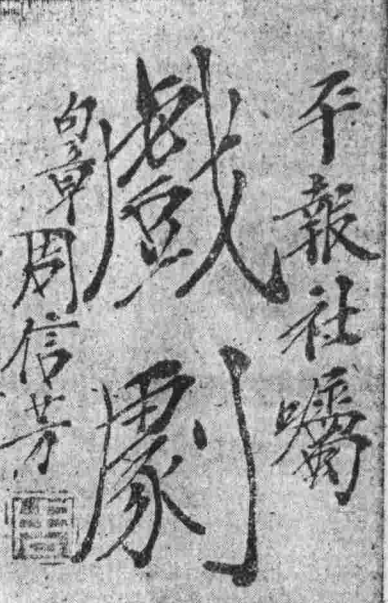 平報社囑
戲劇
句章周信芳